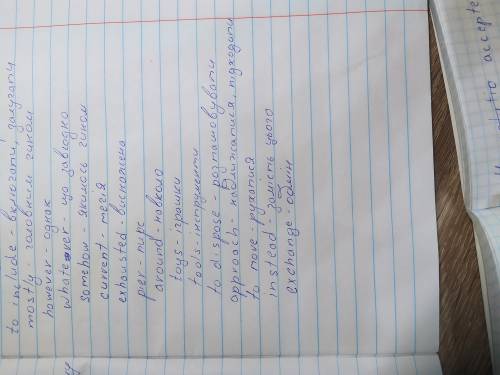 to include - включати, залучати
mostly - головним чином
however однак
whatever - що завгодно
somehow - якимось чином
current - течія
exhausted виснажена
pier - пирс
around - навколо
toys - іграшки
tools - інструменти
to dispose - розташовувати
approach - наближатися, підходити
to move - рухатися
instead - замість цього
exchange - обмін
accepte